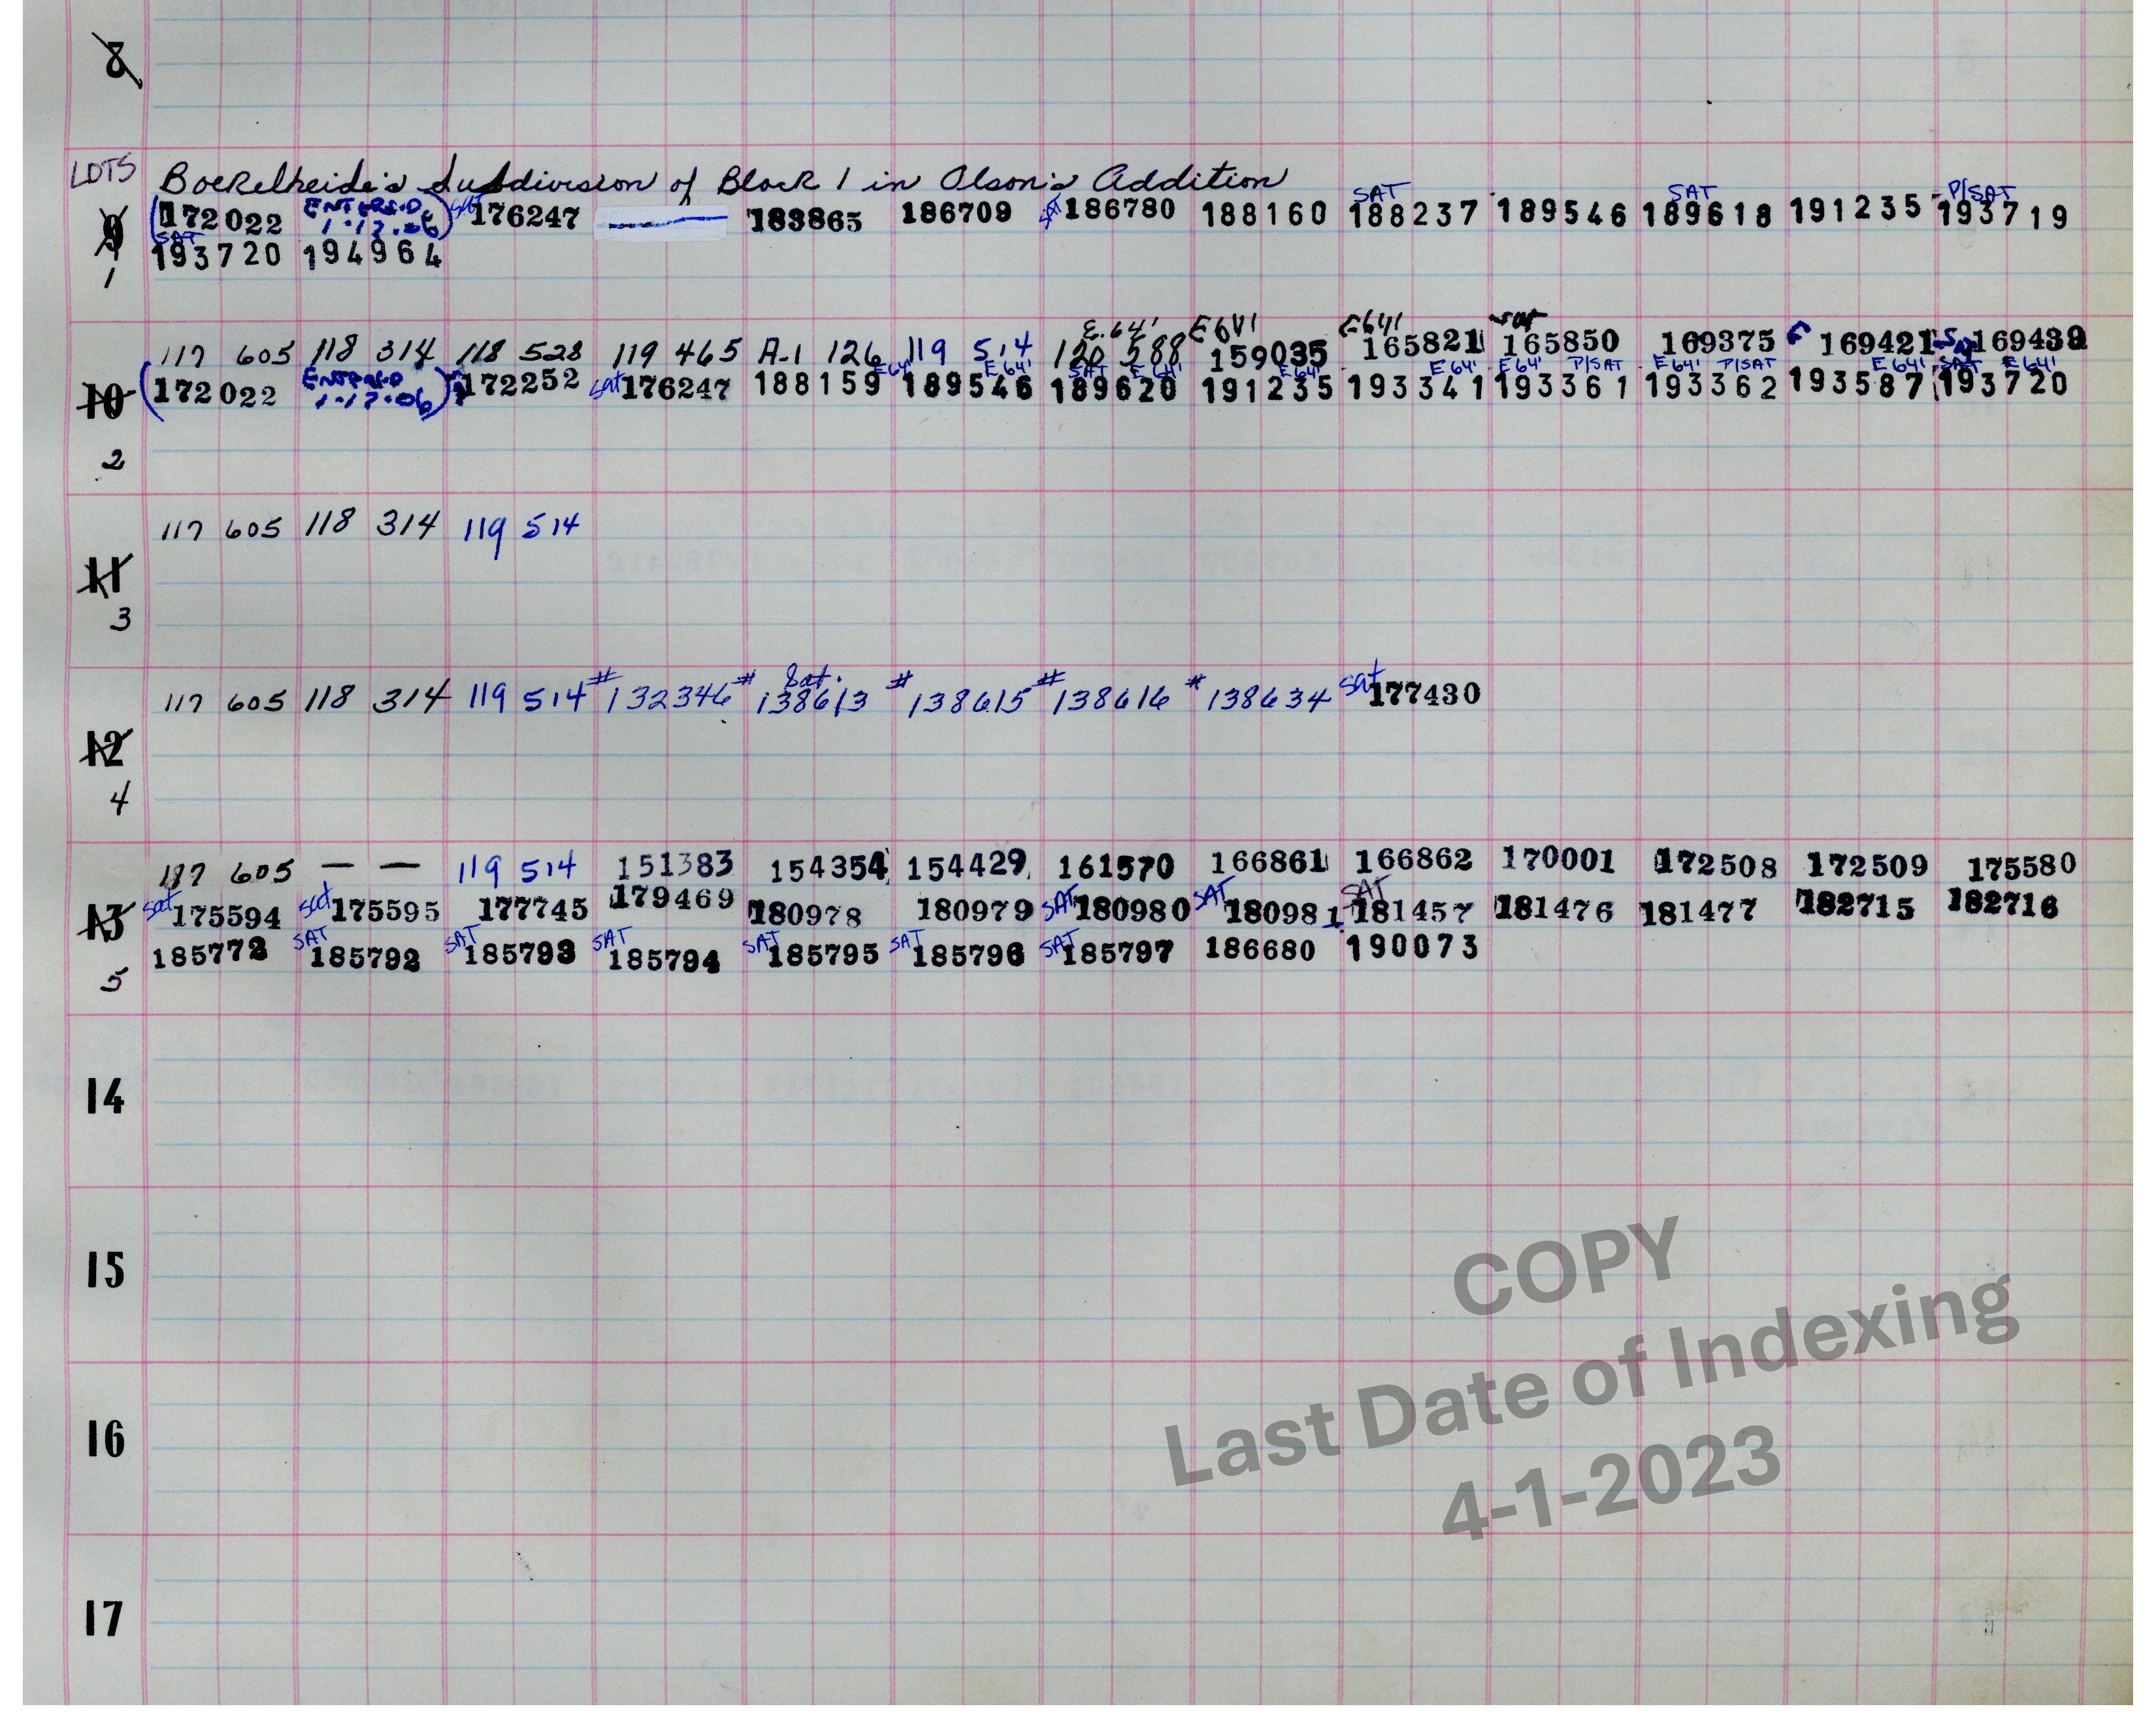 8
LOTS Boekelheide's Subdivision of Block 1 in Olson's Addition
SAT SAT P/SAT
9 (172022 ENTERED 1-17-06) sat 176247 183865 186709 186780 188160 188237 189546 189618 191235 193719
SAT
193720 194964
1
E.64' E64' E64' sat
117 605 118 314 118 528 119 465 A-1 126 119 514 120 588 159035 165821 165850 169375 169421 169439
E64' E64' SAT E64' E64' E64' E64' P/SAT E64' P/SAT E64' SAT E64'
10 (172022 ENTERED 1-17-06) 172252 sat 176247 188159 189546 189620 191235 193341 193361 193362 193587 193720
2
117 605 118 314 119 514
11
3
Sat.
117 605 118 314 119 514 # 132346 # 138613 # 138615 # 138616 * 138634 sat 177430
12
4
117 605 — — 119 514 151383 154354 154429 161570 166861 166862 170001 172508 172509 175580
13 sat 175594 sat 175595 177745 179469 180978 180979 SAT 180980 SAT 180981 SAT 181457 181476 181477 182715 182716
185772 SAT 185792 SAT 185793 SAT 185794 SAT 185795 SAT 185796 SAT 185797 186680 190073
5
14
15
16
17
COPY
Last Date of Indexing
4-1-2023